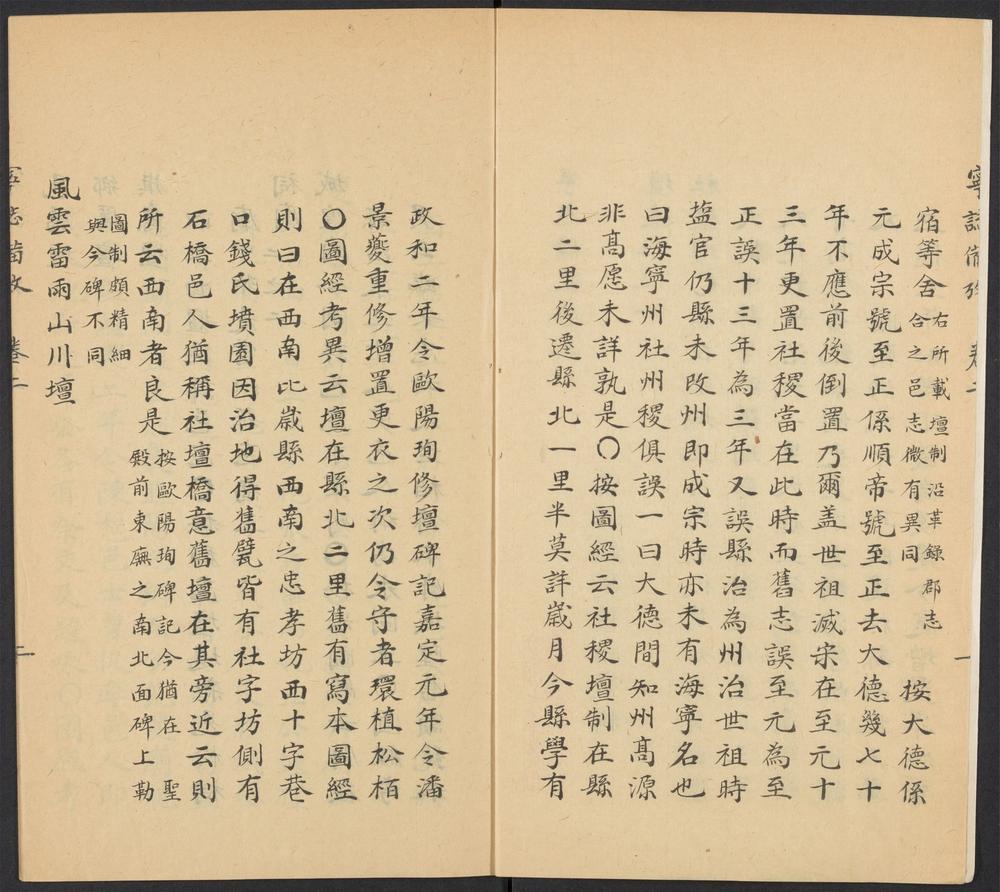 宿等舍右所載壇制沿革錄郡志
合之邑志微有異同按大德係
元成宗號至正係順帝號至正去大德幾七十
年不應前後倒置乃爾盖世祖滅宋在至元十
三年更置社稷當在此時而舊志誤至元為至
正誤十三年為三年又誤縣治為州治世祖時
塩官仍縣未改州即成宗時亦未有海寧名也
曰海寧州社州稷俱誤一曰大德間知州高源
非高愿未詳孰是〇按圖經云社稷壇制在縣
北二里後遷縣北一里半莫詳歲月今縣學有
政和二年令歐陽珣修壇碑記嘉定元年令潘
景夔重修增置更衣之次仍令守者環植松栢
〇圖經考異云壇在縣北二里舊有寫本圖經
則曰在西南比歲縣西南之忠孝坊西十字巷
口錢氏墳園因治地得舊甓皆有社字坊側有
石橋邑人猶稱社壇橋意舊壇在其旁近云則
所云西南者良是按歐陽珣碑記今猶在聖
殿前東廡之南北面碑上勒
圖制頗精細
與今碑不同
風雲雷雨山川壇
卷二
二